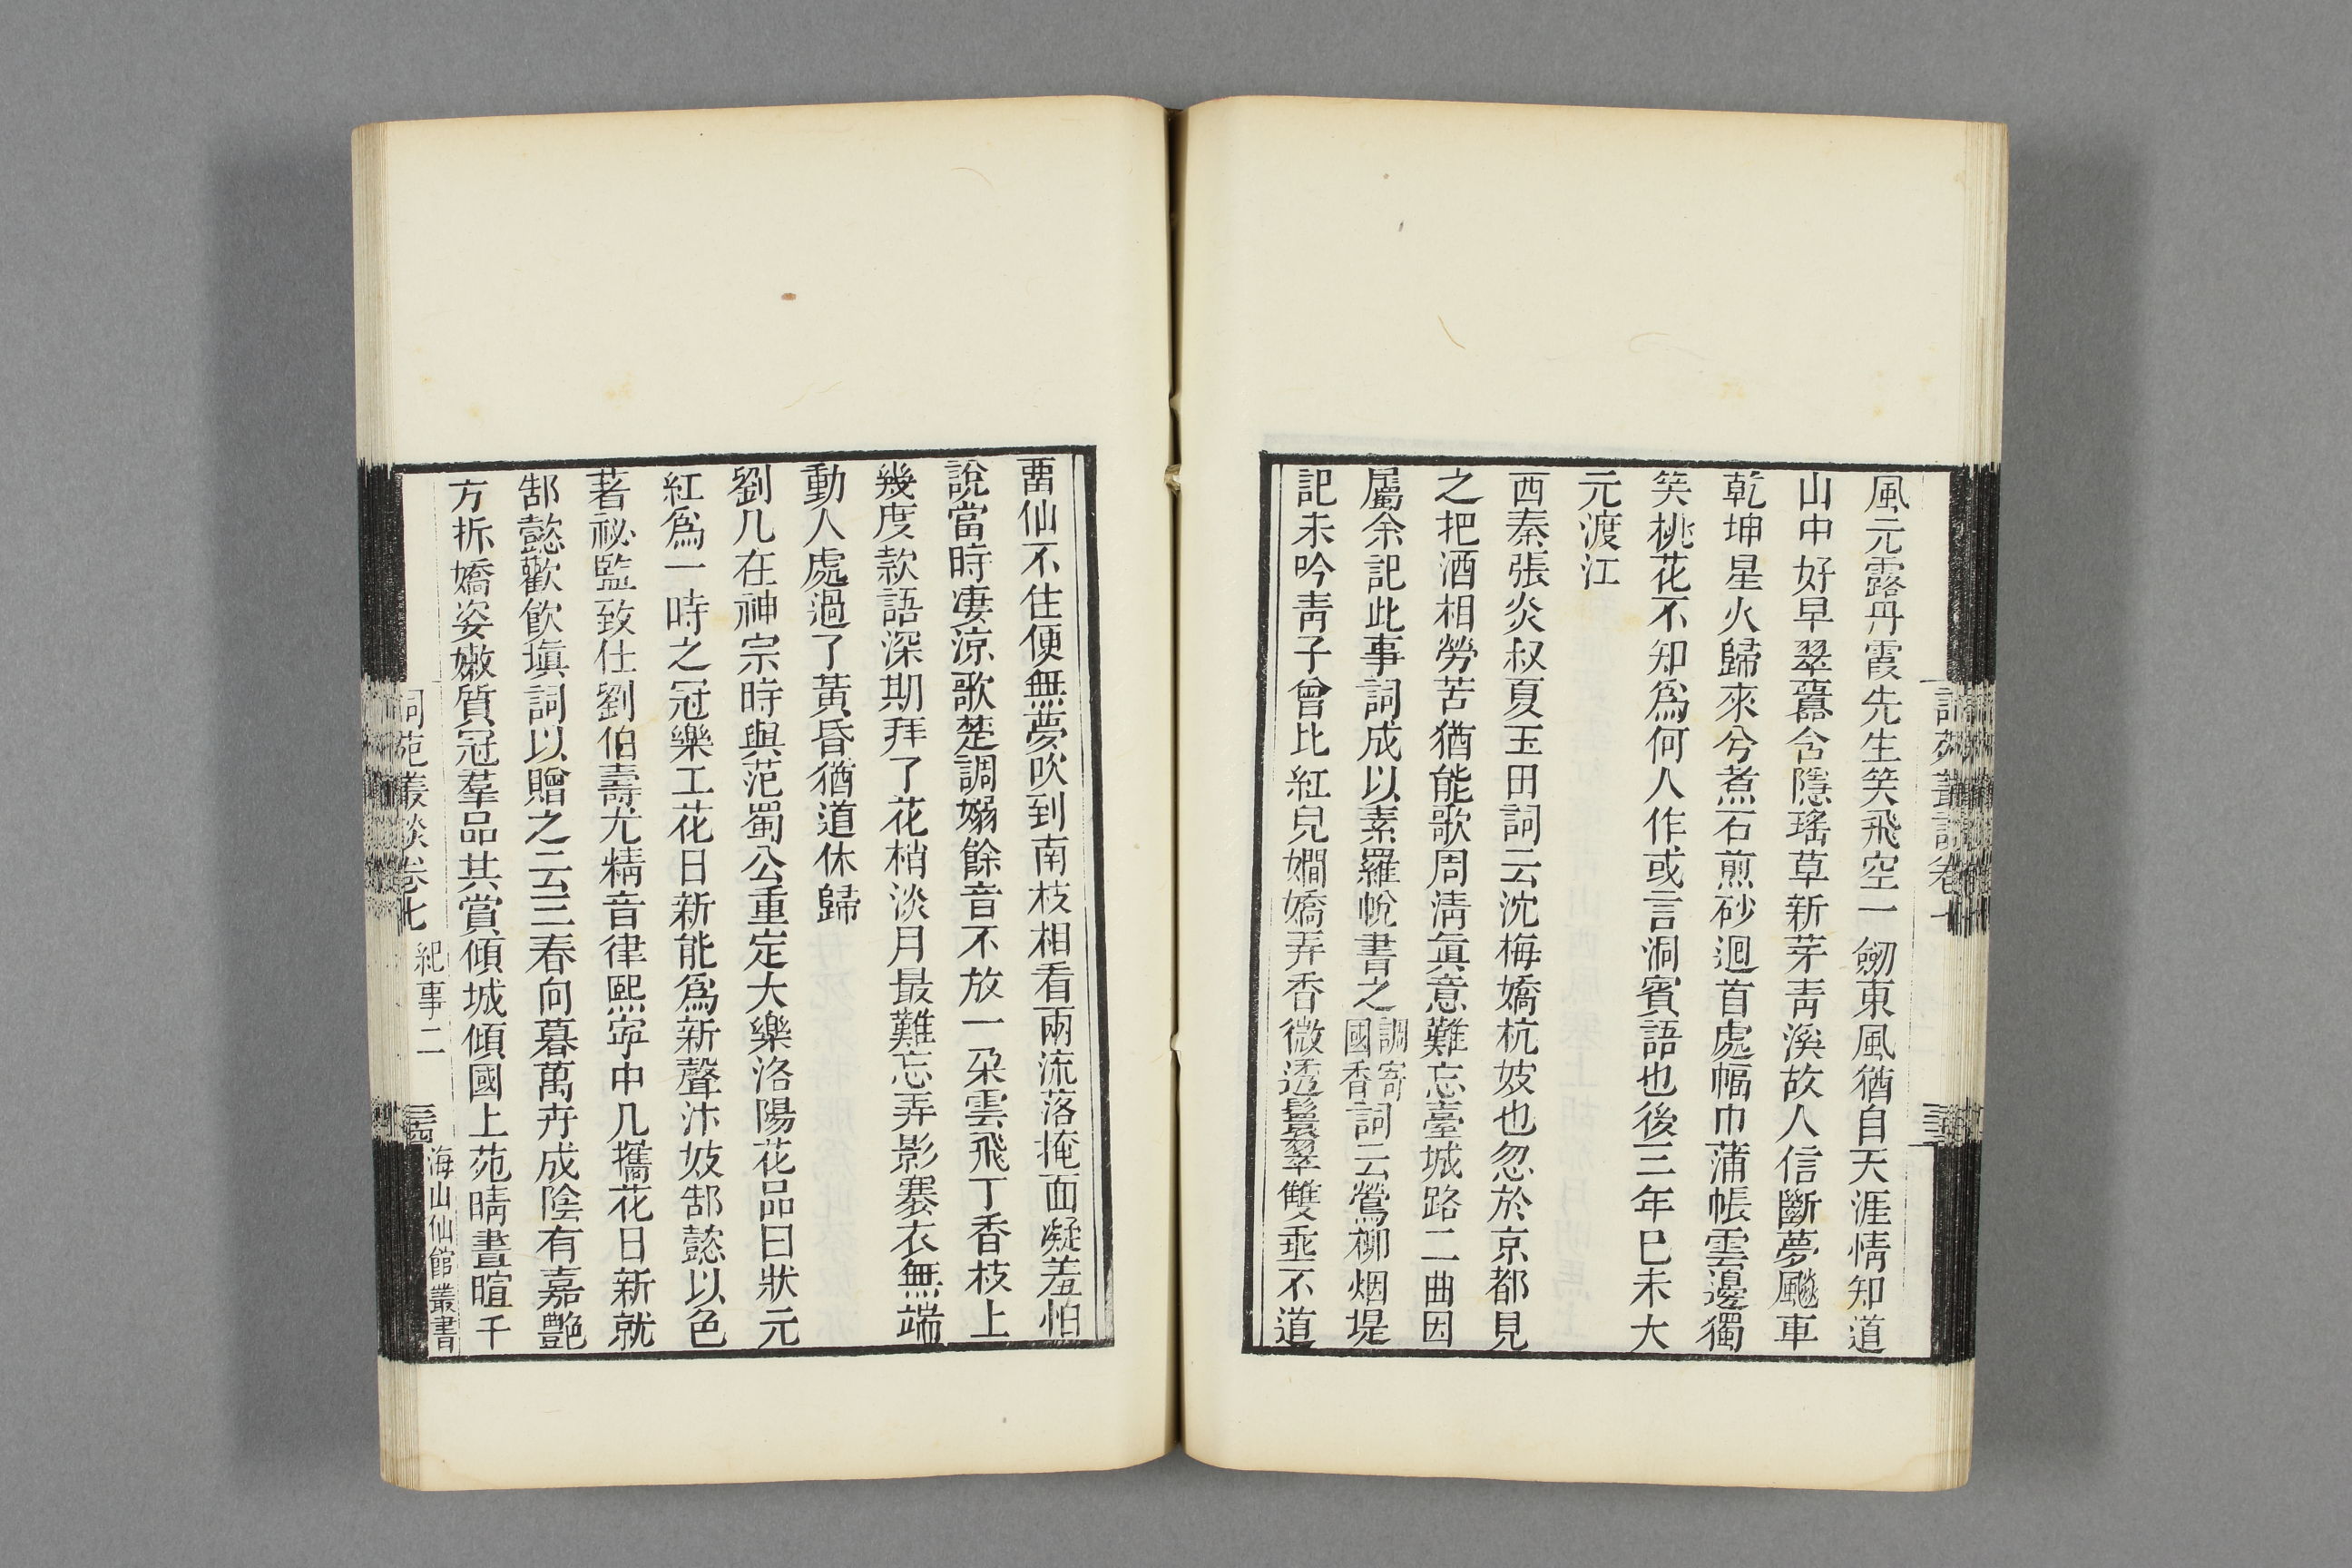 風元露丹霞先生笑飛空一劒東風猶自天涯情知道
山中好早翠囂含隱瑤草新芽靑溪故人信斷夢飈車
乾坤星火歸來兮煮石煎砂迴首處幅巾蒲帳雲邊獨
笑桃花不知爲何人作或言洞賓語也後三年巳未大
元渡江
西秦張炎叔夏玉田詞云沈梅嬌杭妓也忽於京都見
之把酒相勞苦猶能歌周淸眞意難忘臺城路二曲因
屬余記此事詞成以素羅帨書之調寄國香詞云鶯柳烟堤
記未吟靑子曾比紅兒嫺嬌弄香微透鬟翠雙垂不道
畱仙不住便無夢吹到南枝相看兩流落掩面凝羞怕
說當時凄涼歌楚調嫋餘音不放一朶雲飛丁香枝上
幾度款語深期拜了花梢淡月最難忘弄影褰衣無端
動人處過了黃昏猶道休歸
劉几在神宗時與范蜀公重定大樂洛陽花品曰狀元
紅爲一時之冠樂工花日新能爲新聲汴妓郜懿以色
著祕監致仕劉伯壽尤精音律熙寧中几攜花日新就
郜懿歡飮塡詞以贈之云三春向暮萬卉成陰有嘉艷
方拆嬌姿嫩質冠羣品共賞傾城傾國上苑晴晝暄千
詞苑叢談卷七 紀事二
海山仙館叢書